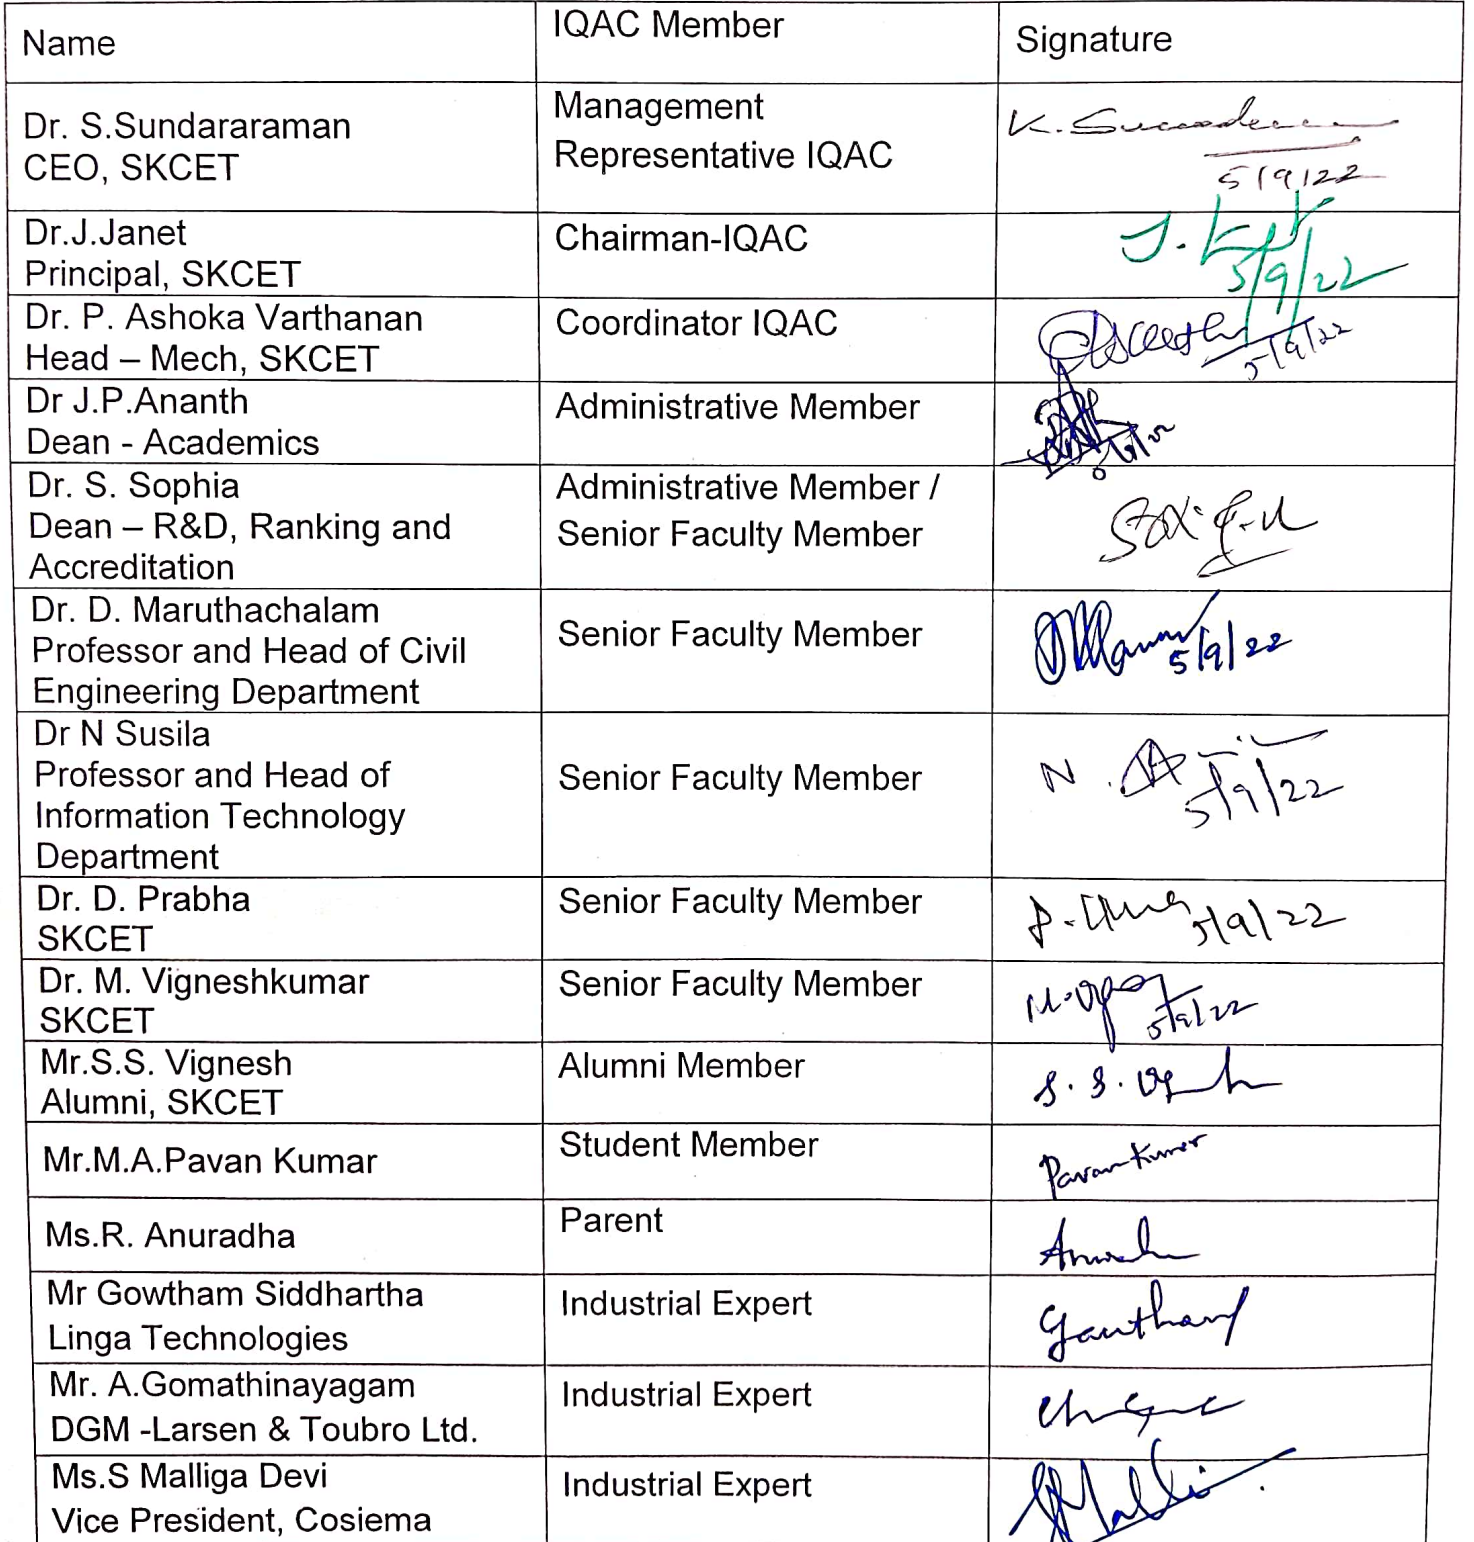 Name
IQAC Member
Signature
Dr. S.Sundararaman
CEO, SKCET
Management
Representative IQAC
5/9/22
Dr.J.Janet
Principal, SKCET
Chairman-IQAC
J.
5/9/22
Dr. P. Ashoka Varthanan
Head – Mech, SKCET
Coordinator IQAC
5/9/22
Dr J.P.Ananth
Dean - Academics
Administrative Member
Dr. S. Sophia
Dean – R&D, Ranking and
Accreditation
Administrative Member /
Senior Faculty Member
Dr. D. Maruthachalam
Professor and Head of Civil
Engineering Department
Senior Faculty Member
5/9/22
Dr N Susila
Professor and Head of
Information Technology
Department
Senior Faculty Member
N.
5/9/22
Dr. D. Prabha
SKCET
Senior Faculty Member
5/9/22
Dr. M. Vigneshkumar
SKCET
Senior Faculty Member
5/9/22
Mr.S.S. Vignesh
Alumni, SKCET
Alumni Member
S. S.
Mr.M.A.Pavan Kumar
Student Member
Pavan Kumar
Ms.R. Anuradha
Parent
Mr Gowtham Siddhartha
Linga Technologies
Industrial Expert
Mr. A.Gomathinayagam
DGM -Larsen & Toubro Ltd.
Industrial Expert
Ms.S Malliga Devi
Vice President, Cosiema
Industrial Expert